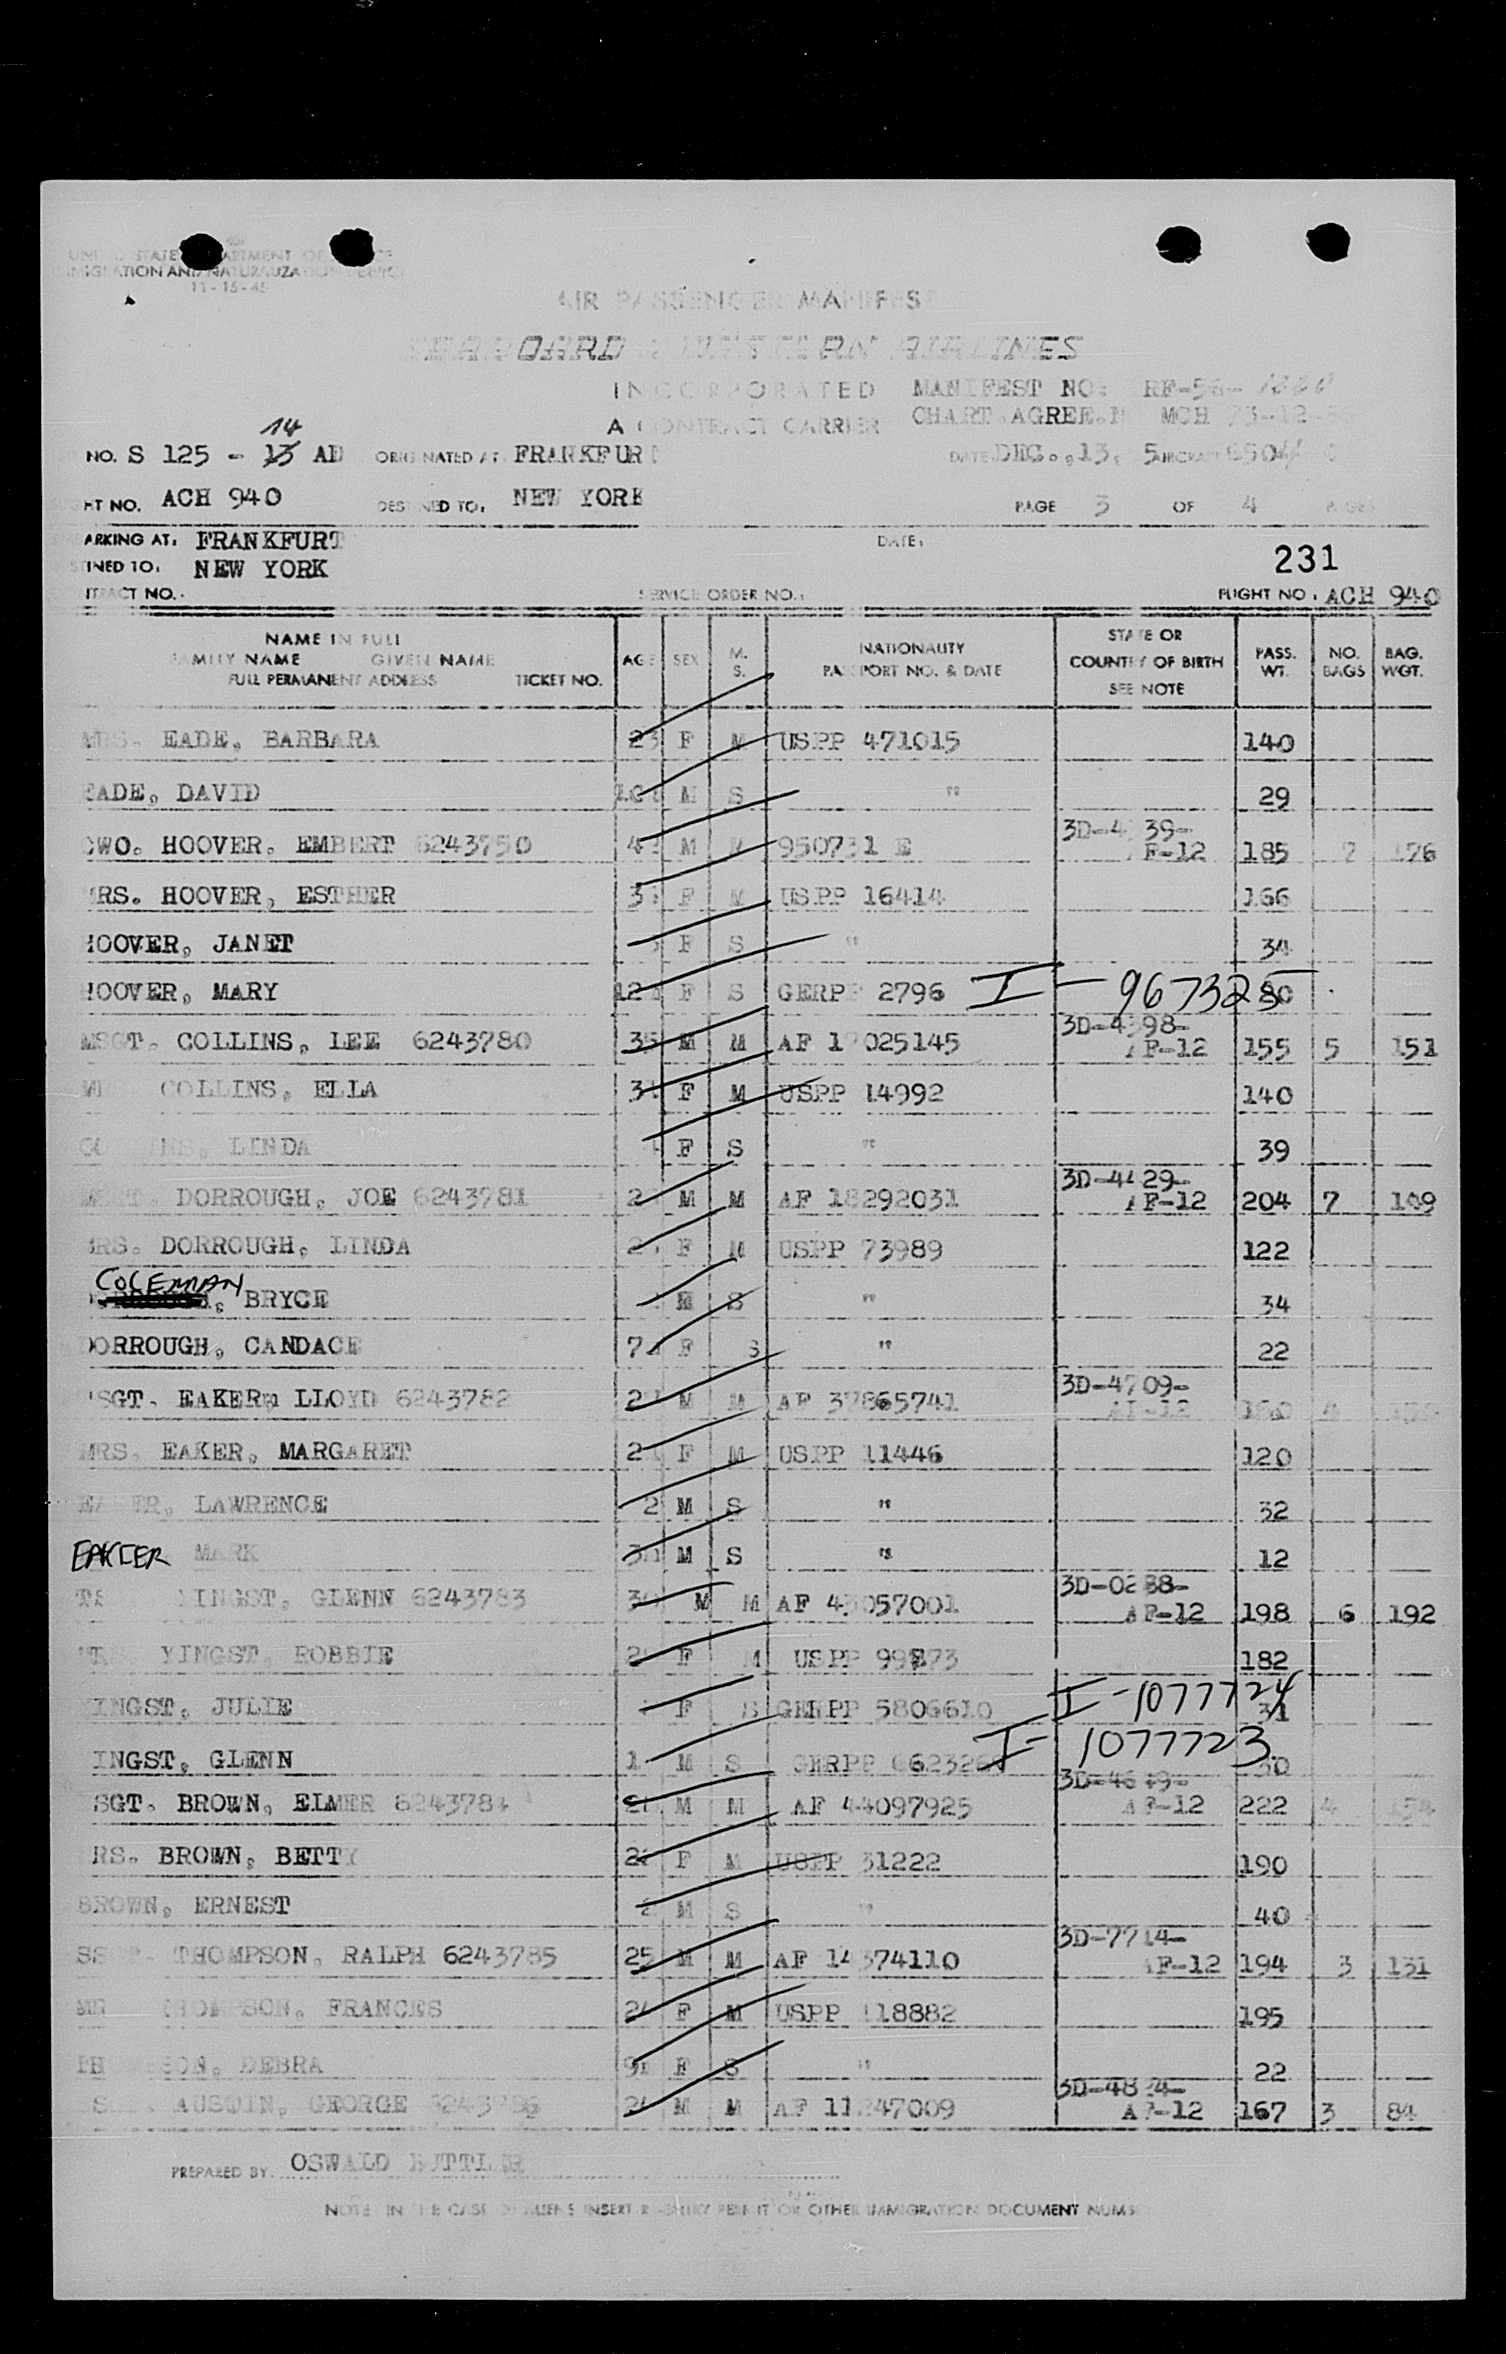 11-15-45
AIR PASSENGER MANIFEST
SEABOARD & WESTERN AIRLINES
INCORPORATED MANIFEST NO: RF-56-
A CONTRACT CARRIER CHART.AGREE. MCH
14
NO. S 125 - 13 AD ORIGINATED AT FRANKFURT DATE DEC. 13, AIRCRAFT
FLIGHT NO. ACH 940 DESTINED TO: NEW YORK PAGE 3 OF 4 PAGES
ARKING AT: FRANKFURT DATE:
STINED TO: NEW YORK 231
TRACT NO. SERVICE ORDER NO.: FLIGHT NO: ACH 940
NAME IN FULL
FAMILY NAME GIVEN NAME
FULL PERMANENT ADDRESS TICKET NO.
AGE SEX M. S.
NATIONALITY
PASSPORT NO. & DATE
STATE OR
COUNTRY OF BIRTH
SEE NOTE
PASS. WT.
NO. BAGS
BAG. WGT.
MRS. EADE, BARBARA 23 F M USPP 471015 140
EADE, DAVID M S " 29
CWO. HOOVER, EMBERT 6243750 M M 950731 E 3D-4 39- AF-12 185 176
MRS. HOOVER, ESTHER F M USPP 16414 166
HOOVER, JANET F S " 34
HOOVER, MARY 12 F S GERPP 2796 I-967325 80
MSGT. COLLINS, LEE 6243780 35 M M AF 1 025145 3D-4398- AF-12 155 5 151
COLLINS, ELLA F M USPP 14992 140
COLLINS, LINDA F S " 39
DORROUGH, JOE 6243781 M M AF 18292031 3D-4429- AF-12 204 7 149
MRS. DORROUGH, LINDA F M USPP 73989 122
COLEMAN
BRYCE M S " 34
DORROUGH, CANDACE 7 F S " 22
SGT. EAKER, LLOYD 6243782 M M AF 37865741 3D-4709- AF-12 4
MRS. EAKER, MARGARET F M USPP 11446 120
EAKER, LAWRENCE 2 M S " 32
EAKER MARK M S " 12
YINGST, GLENN 6243783 M M AF 4 057001 3D-0288- AF-12 198 6 192
YINGST, ROBBIE F M USPP 182
YINGST, JULIE F S GERPP 5806610 I-1077724 31
YINGST, GLENN M S GERPP I-1077723
SGT. BROWN, ELMER 6243784 M M AF 44097925 AF-12 222 4 154
MRS. BROWN, BETTY F M USPP 31222 190
BROWN, ERNEST M S " 40
THOMPSON, RALPH 6243785 25 M M AF 14374110 3D-7714- AF-12 194 3 131
THOMPSON, FRANCES F M USPP 118882 195
THOMPSON, DEBRA F S " 22
GEORGE M M AF 11 47009 AF-12 167 3 84
PREPARED BY. OSWALD
NOTE IN THE CASE OF ALIENS INSERT RE-ENTRY PERMIT OR OTHER IMMIGRATION DOCUMENT NUMBER